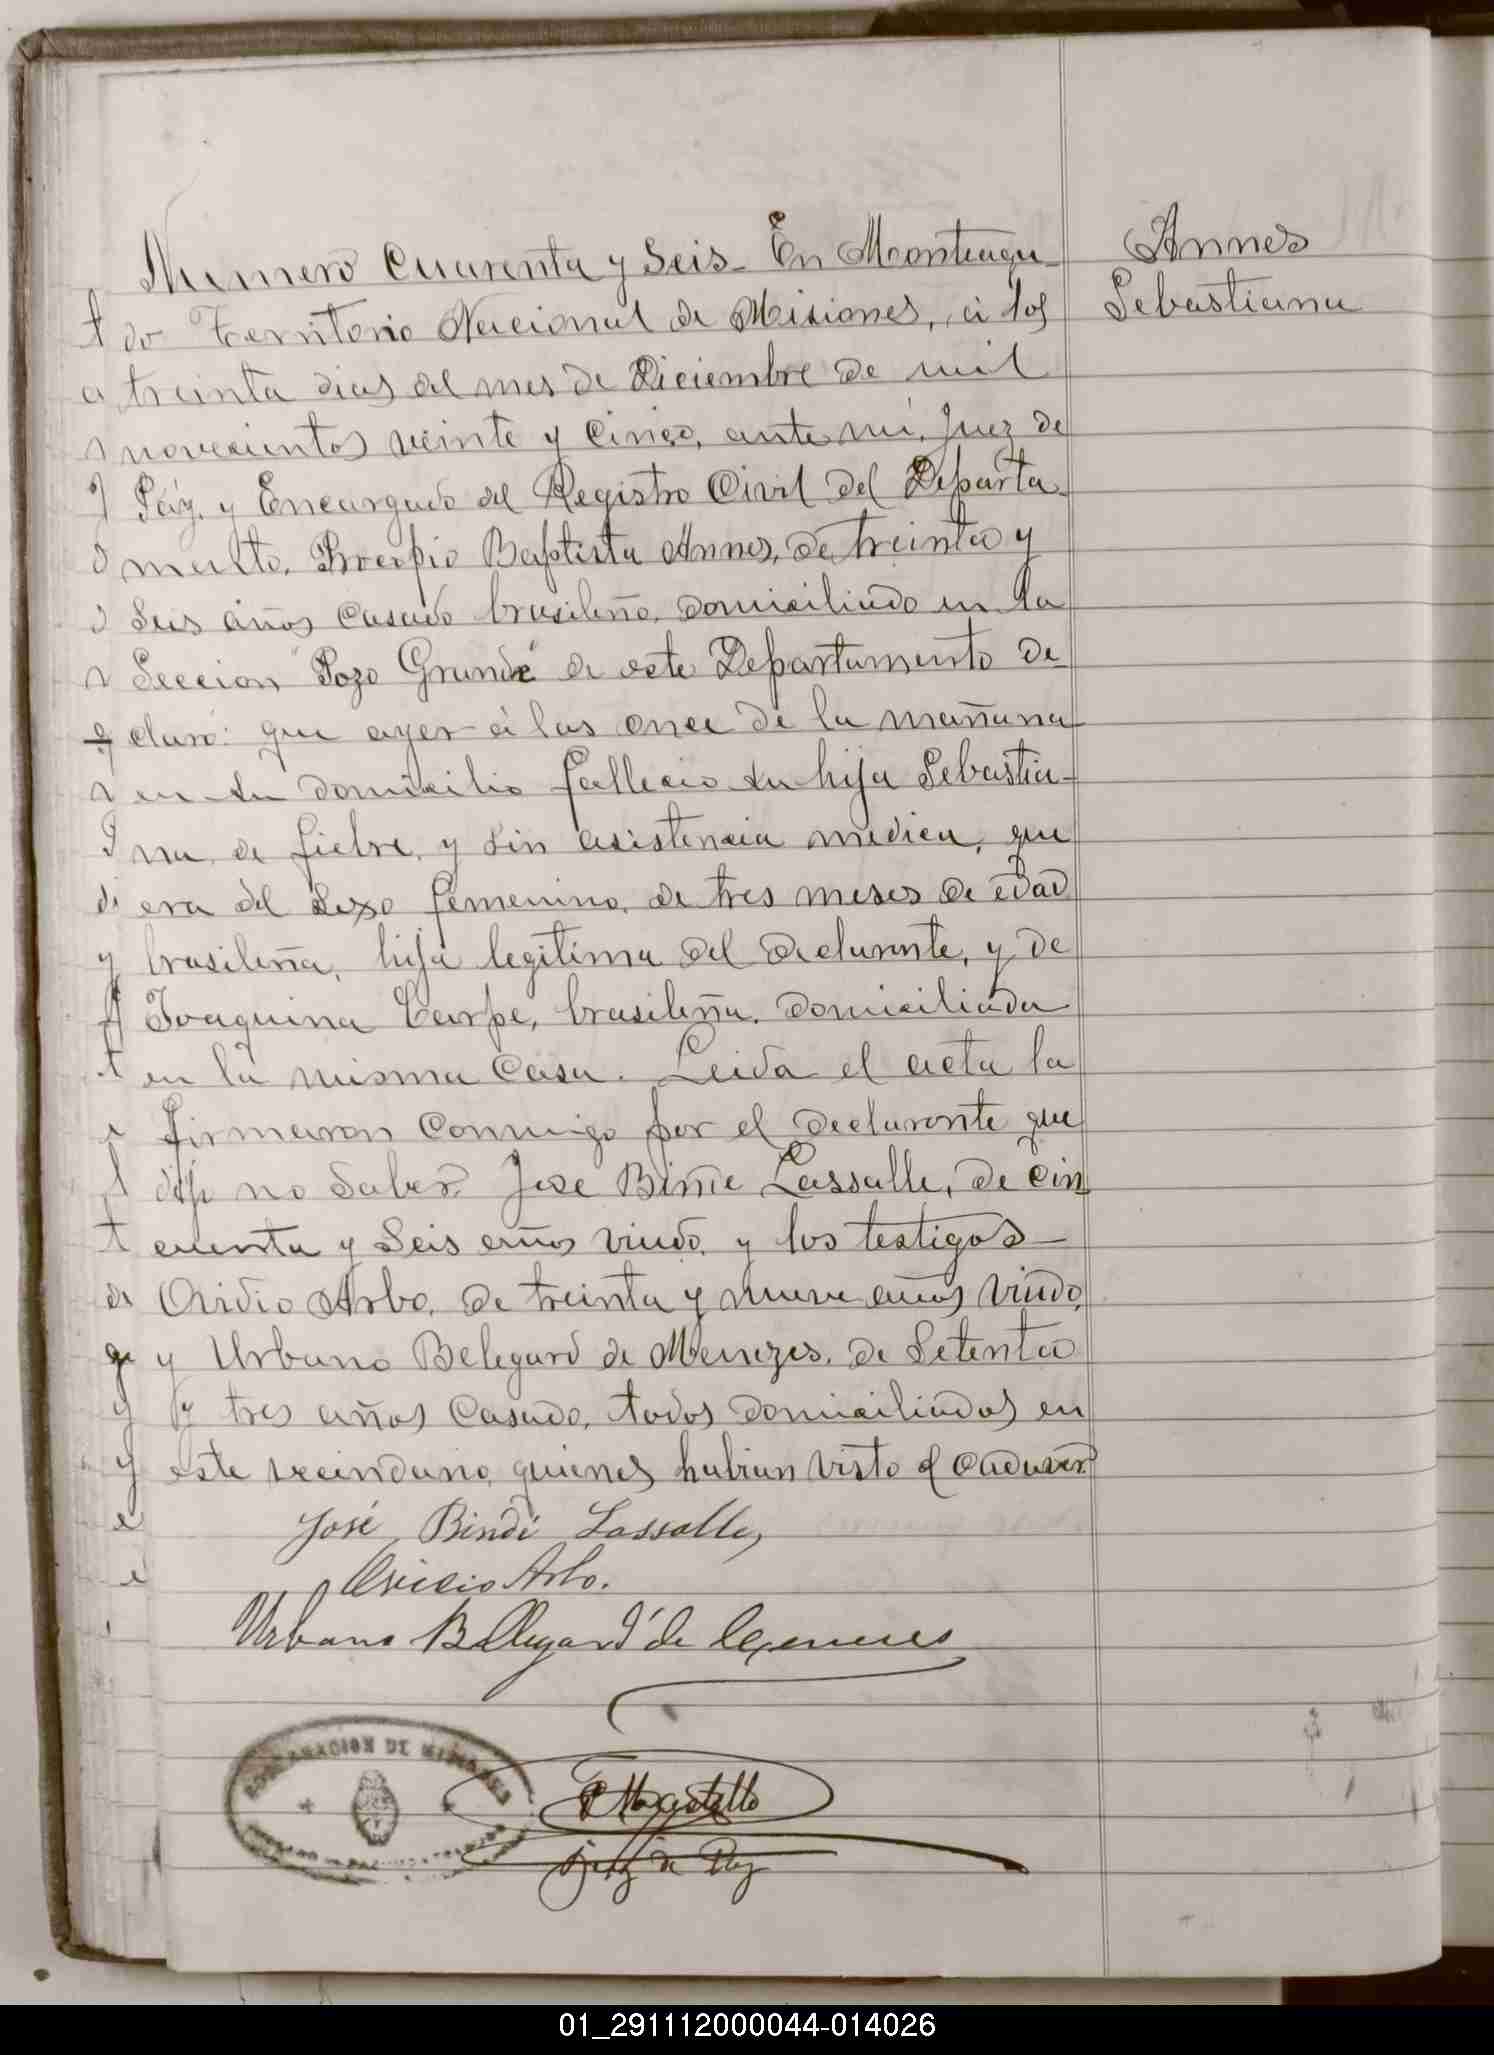 Annes
Sebastiana
Numero Cuarenta y Seis - En Monteagu-
do Territorio Nacional de Misiones, á los
treinta dias del mes de Diciembre de mil
novecientos veinte y cinco, ante mi, Juez de
Páz, y Encargado del Registro Civil del Departa-
mento, Baptista Annes, de treinta y
seis años casado brasileño, domiciliado en la
Seccion Pozo Grande de este Departamento de
claró: que ayer á las once de la mañana
en su domicilio fallecio su hija Sebastia-
na, de fiebre, y sin asistencia medica, que
era del sexo femenino, de tres meses de edad
y brasileña, hija legitima del declarante, y de
Joaquina Carpe, brasileña, domiciliada
en la misma casa. Leida el acta la
firmaron conmigo por el declarante que
dijo no saber, Jose Binde Lassalle, de cin
cuenta y seis años viudo, y los testigos -
Ovidio Arbo, de treinta y nueve años viudo,
y Urbano Belegard de Menezes, de setenta
y tres años casado, todos domiciliados en
este vecindario, quienes habian visto el cadaver.
José Bindé Lassalle,
Ovidio Arbo.
Urbano Bellegard de Menezes
GOBERNACION DE MISIONES
Juez de Paz
01_291112000044-014026